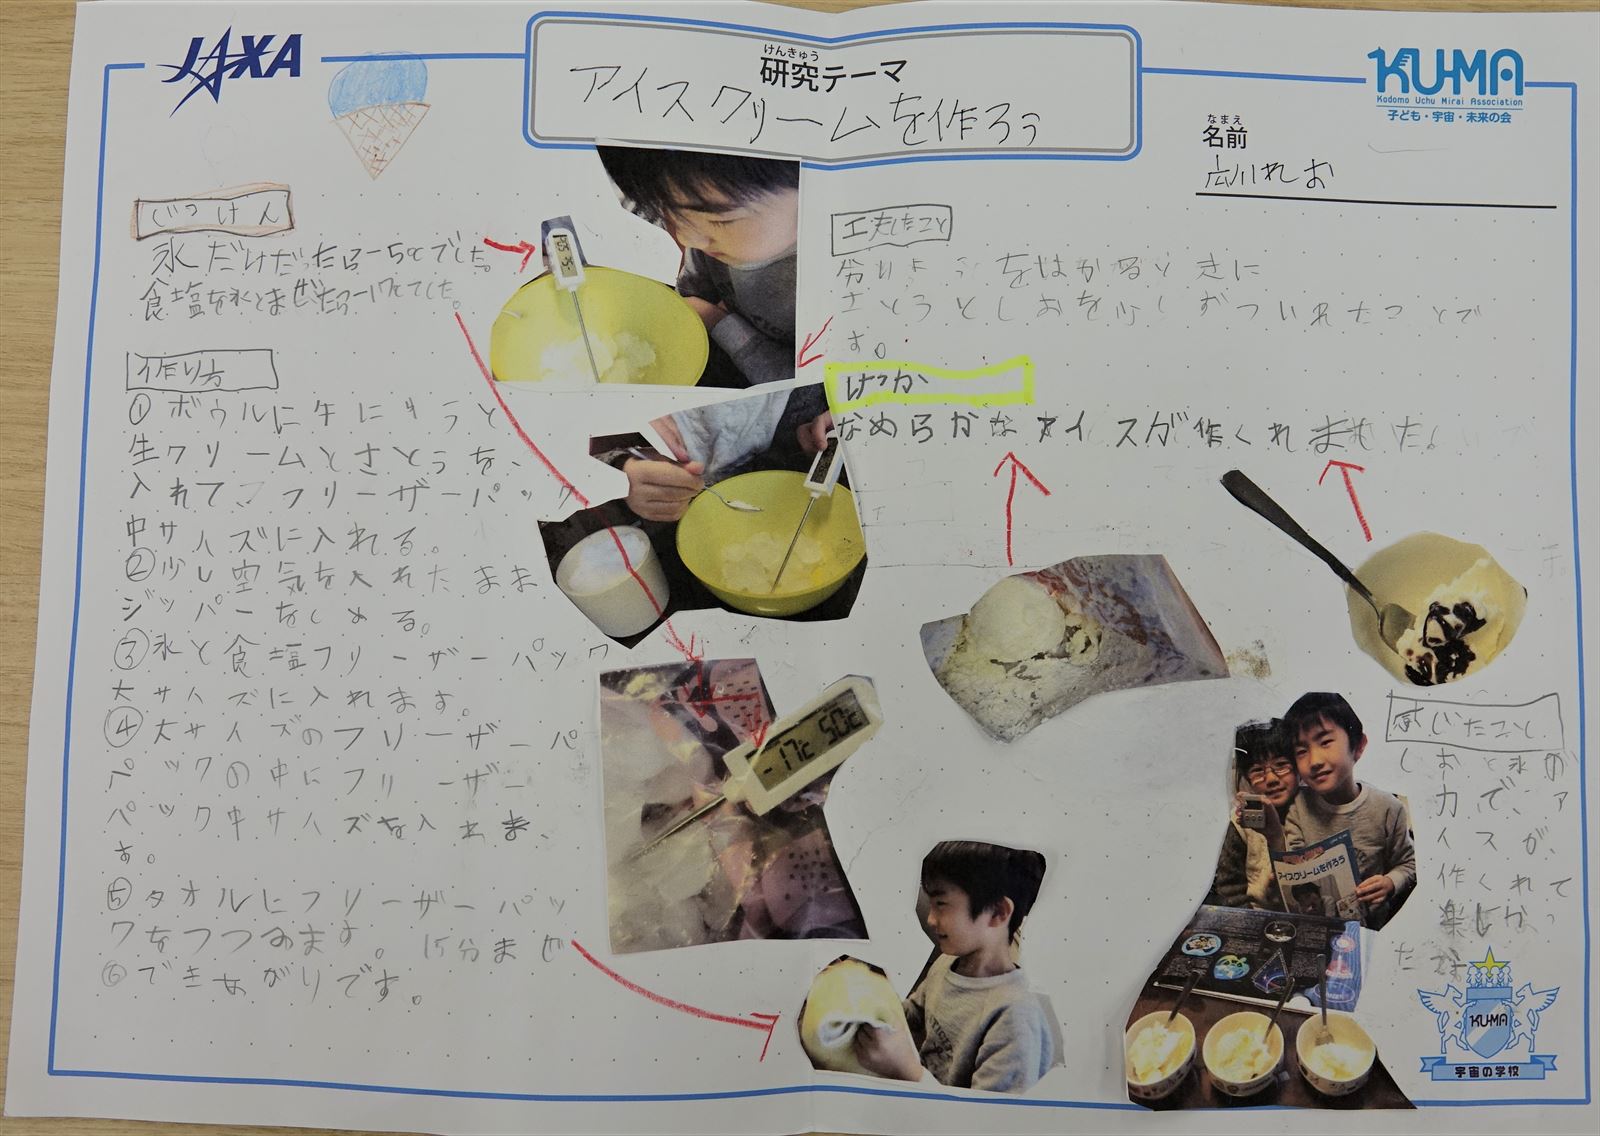 JAXA
けんきゅう
研究テーマ
アイスクリームを作ろう
KU-MA
Kodomo Uchu Mirai Association
子ども・宇宙・未来の会
なまえ
名前
広川れお
じっけん
氷だけだったら-5℃でした。
食塩を氷とまぜたら-17℃でした。
作り方
①ボウルに牛にゅうと
生クリームとさとうを、
入れてフリーザーパック
中サイズに入れる。
②少し空気を入れたまま
ジッパーをしめる。
③氷と食塩フリーザーパック
大サイズに入れます。
④大サイズのフリーザーパ
パックの中にフリーザー
パック中サイズを入れま、
す。
⑤タオルにフリーザーパッ
クをつつみます。15分まぜ
⑥できあがりです。
工夫したこと
分りょうをはかるときに
さとうとしおを少しずついれたことで
す。
けっか
なめらかなアイスが作くれました。
-17℃ 50℃
感じたこと
しおと氷の
力で、ア
イスが、
作くれて
楽しかっ
た
アイスクリームを作ろう
KU-MA
宇宙の学校